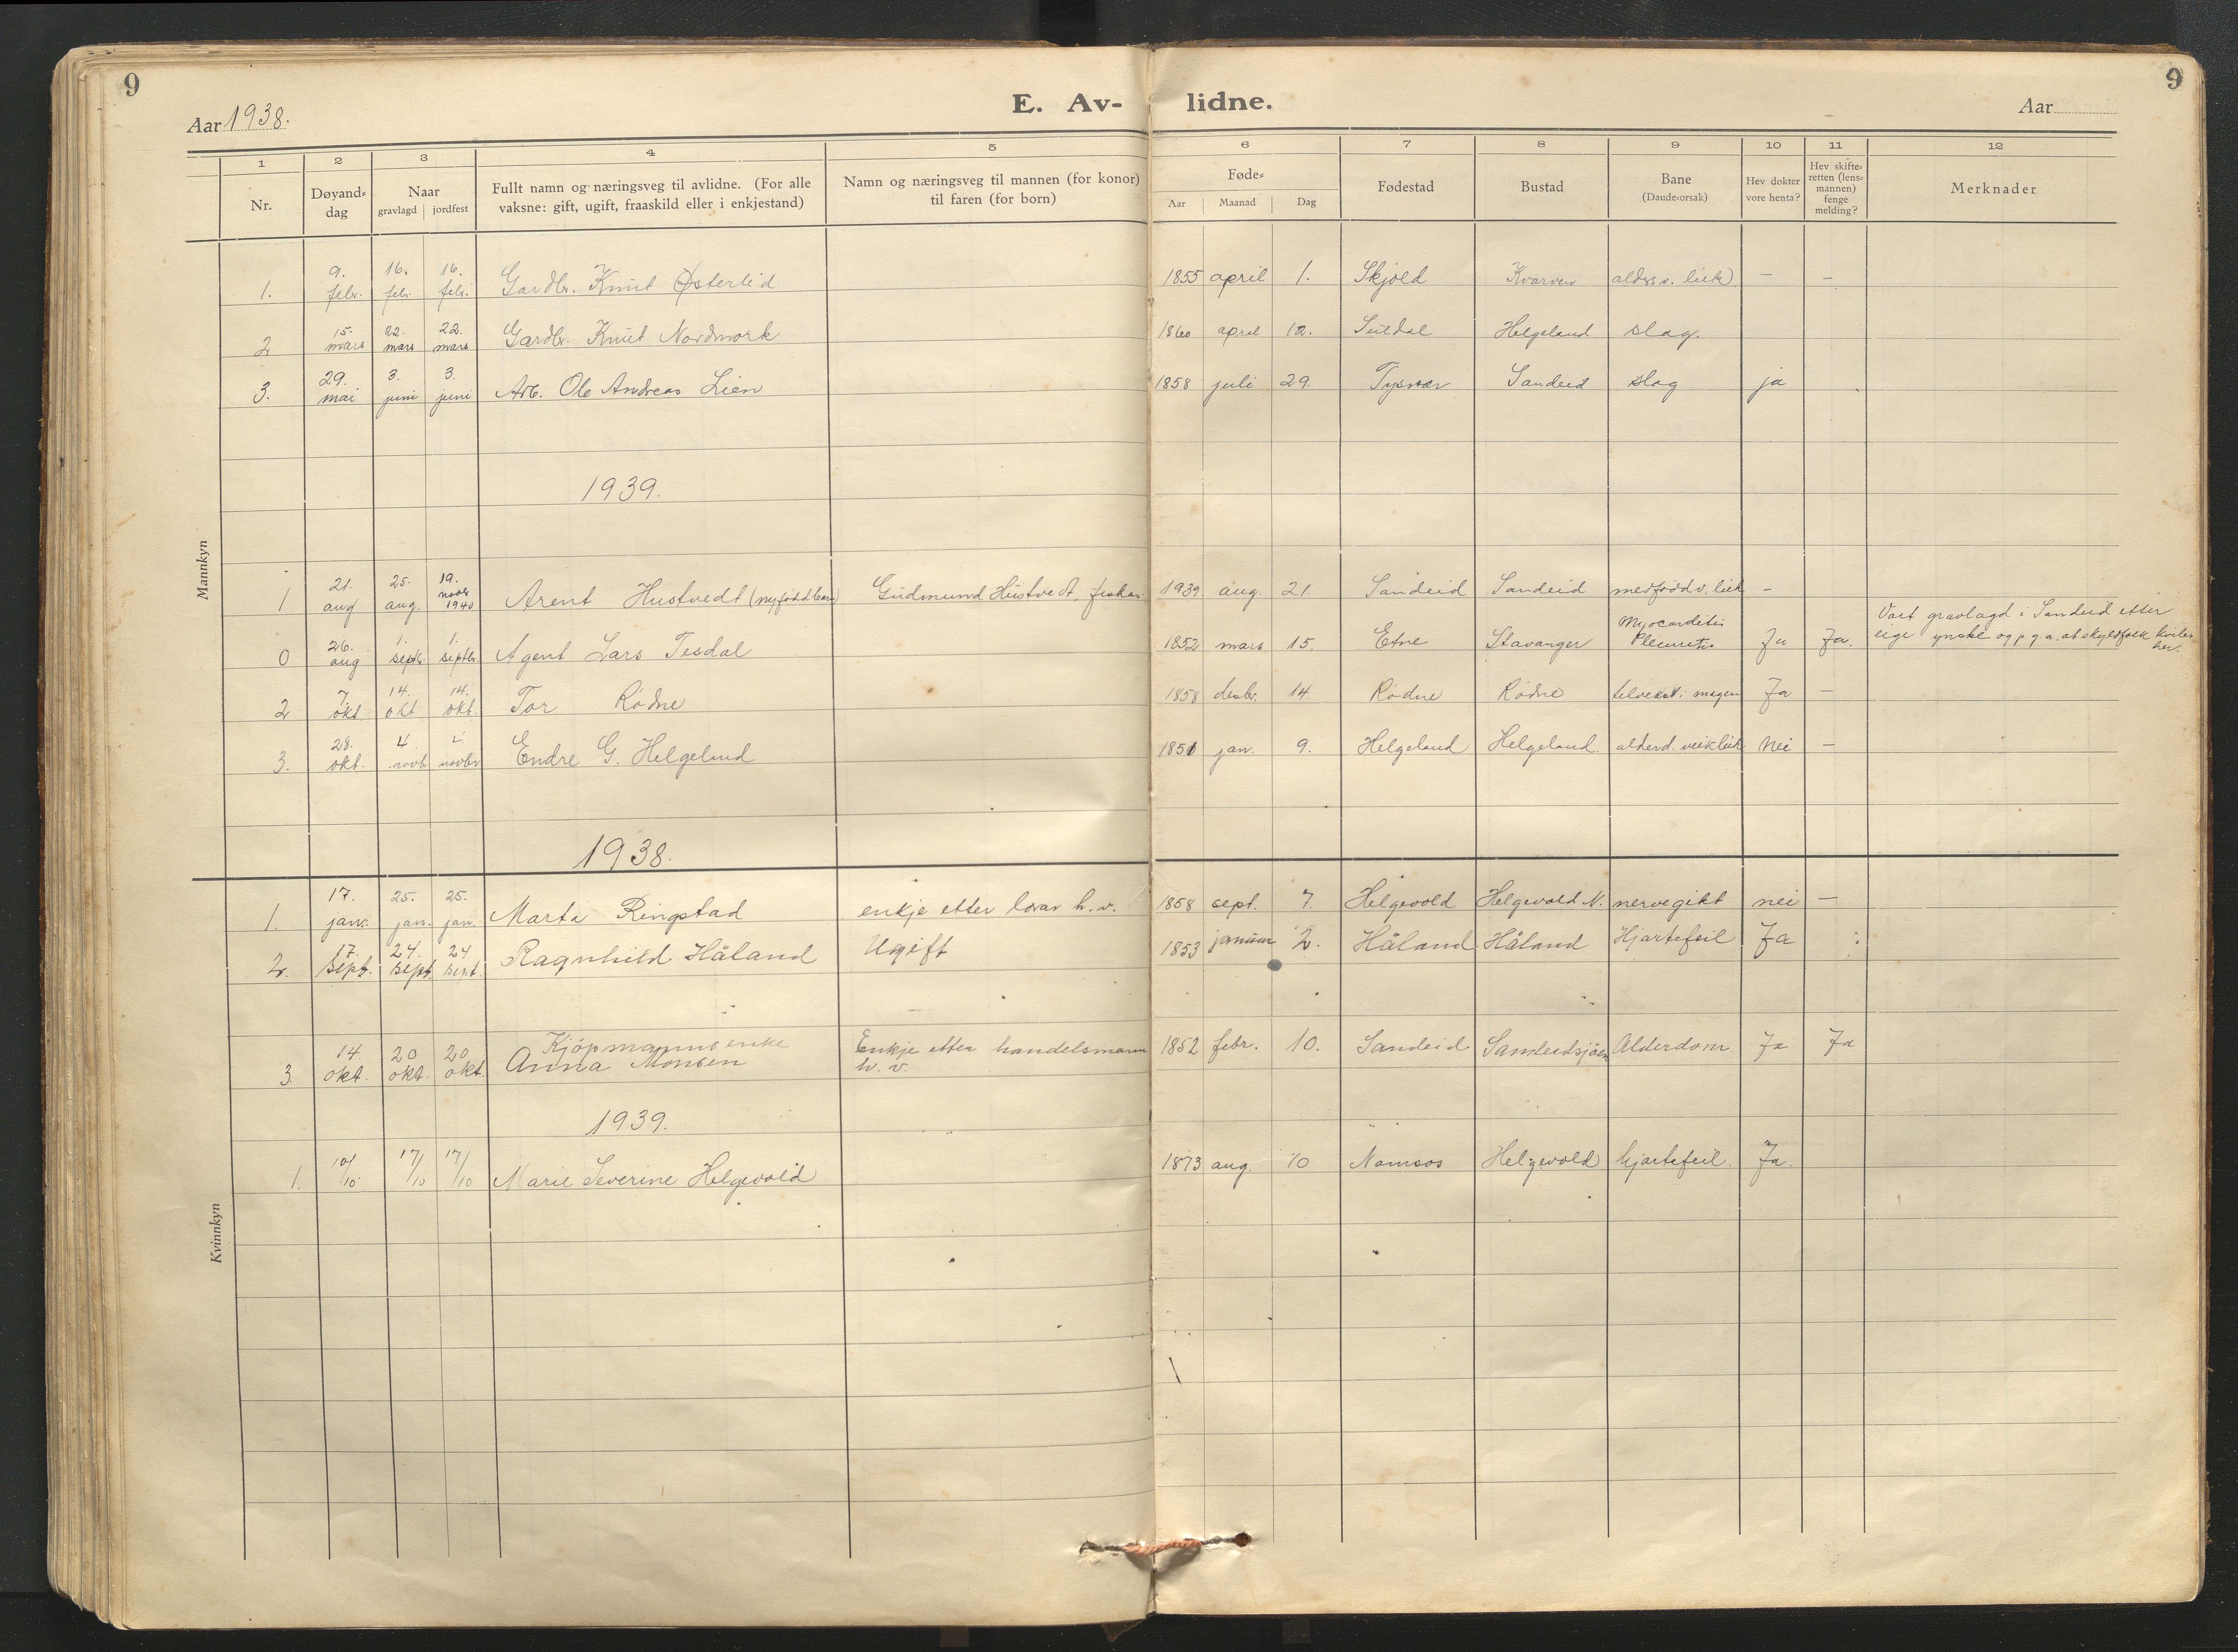 9
9
Aar 1938.
E. Av-lidne.
Aar
1 2 3 4 5 6 7 8 9 10 11 12
Nr.
Døyand-
dag
Naar
gravlagd jordfest
Fullt namn og næringsveg til avlidne. (For alle
vaksne: gift, ugift, fraaskild eller i enkjestand)
Namn og næringsveg til mannen (for konor)
til faren (for born)
Føde-
Aar Maanad Dag
Fødestad
Bustad
Bane
(Daude-orsak)
Hev dokter
vore henta?
Hev skifte-
retten (lens-
mannen)
fenge
melding?
Merknader
Mannkyn
1. 9. febr. 16. febr. 16. febr. Gardbr. Knut Østerlid 1855 april 1. Skjold Kvarven alders v. leik) — —
2 15. mars 22. mars 22. mars Gardbr. Knut Nordmork 1860 april 12. Suldal Helgeland slag.
3. 29. mai 3. juni 3. juni Arb. Ole Andreas Lien 1858 juli 29. Tysvær Sandeid slag ja
1939.
1 21. aug 25. aug. 19. novbr 1940 Arent Hustvedt (nyfødd barn) Gudmund Hustvedt, fiskar 1939 aug. 21. Sandeid Sandeid medfødd v. leik —
0 26. aug 1. septbr. 1. septbr. Agent Lars Tesdal 1852 mars 15. Etne Stavanger Myocarditis Pleuritis Ja Ja. Vart gravlagd i Sandeid etter
eige ynskje og p.g.a. at skyldfolk kviler
her.
2 7. okt. 14. okt 14. okt. Tor Rødne 1858 desbr. 14. Rødne Rødne i magen Ja —
3. 28. okt. 4 novb 4 novbr Endre G. Helgeland 1851 jan. 9. Helgeland Helgeland. alderd. veikleik Nei —
1938.
1. 17. jan. 25. jan. 25. jan. Marta Ringstad enkje etter h. v. 1858 sept. 7. Helgevold Helgevold N. nervegikt nei —
2. 17. Sept. 24. sept. 24 sept. Ragnhild Håland Ugift 1853 januar 2. Håland Håland Hjartefeil Ja
3. 14. okt. 20 okt. 20 okt. Kjøpmannsenke
Anna Monsen Enkje etter handelsmann
h. v. 1852 febr. 10. Sandeid Sandeidsjøen Alderdom Ja Ja
1939.
1. 10/10. 17/10 17/10 Marie Severine Helgevold 1873 aug. 10 Namsos Helgevold hjartefeil. Ja.
Kvinnkyn